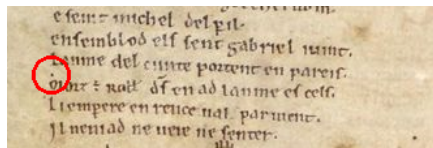 e seint michel del pil.
ensemblod els sent gabriel iuint.
lanme del cunte portent en pareis.
Morz ⁊ Roll͛ d͛s en ad lanme es cels.
Li emperere en rence ual paruient.
Il nen iad ne ueie ne senter.